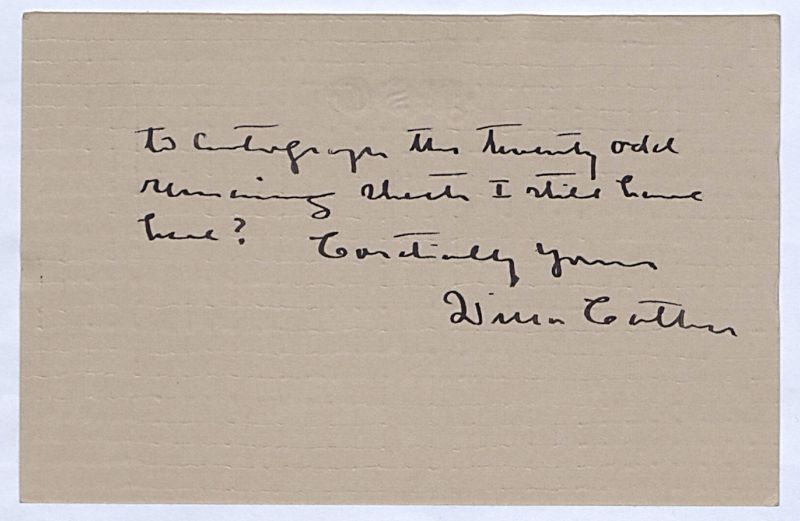 to autograph the twenty odd
remaining sheets I still have
here? Cordially yours
Willa Cather